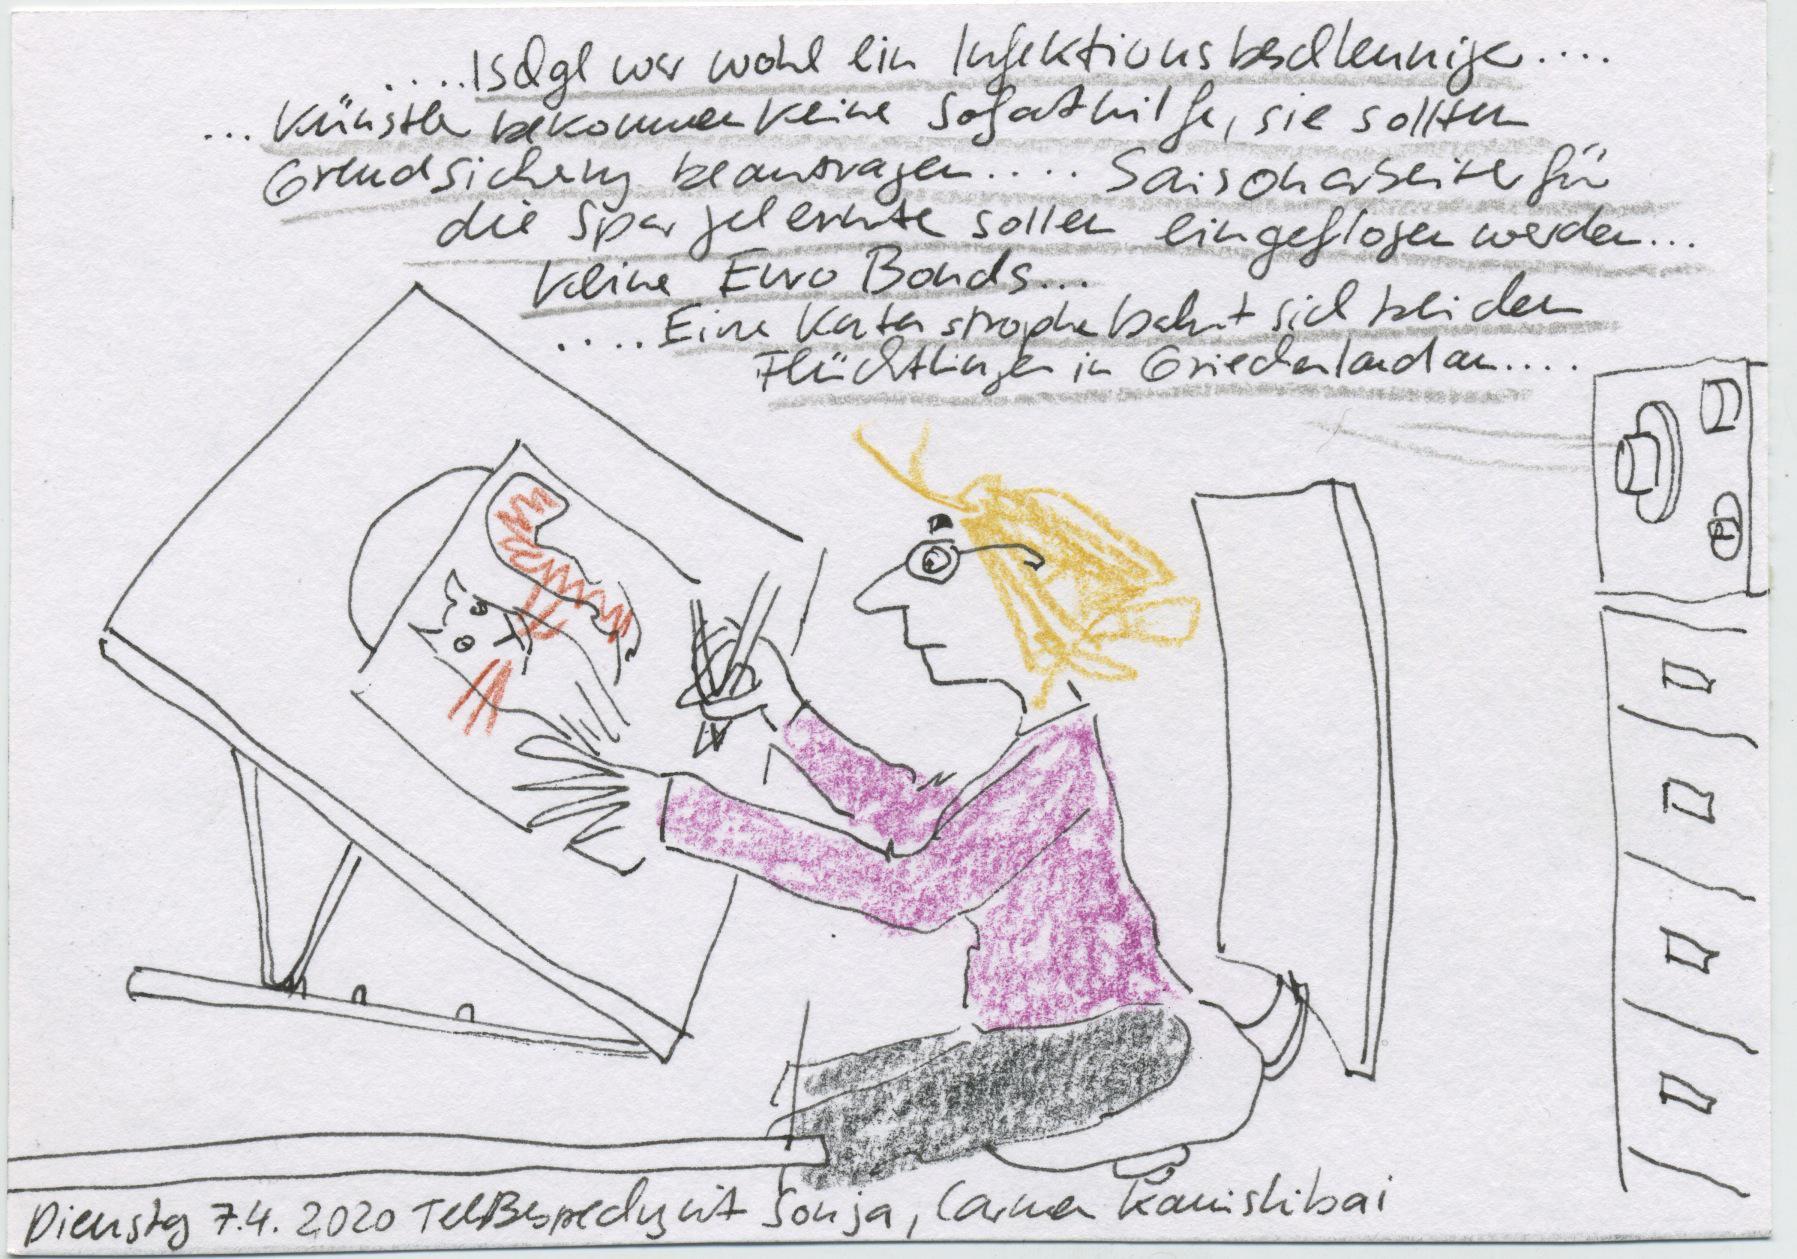 .....Ischgl war wohl ein Infektionsbeschleuniger....
...Künstler bekommen keine Soforthilfe, sie sollten
Grundsicherung beantragen.... Saisonarbeiter für
die Spargelernte sollen eingeflogen werden...
keine Euro Bonds...
.....Eine Katastrophe bahnt sich bei den
Flüchtlingen in Griechenland an....
Dienstag 7.4. 2020 Tel Besprechg mit Sonja, Carmen Kamishibai